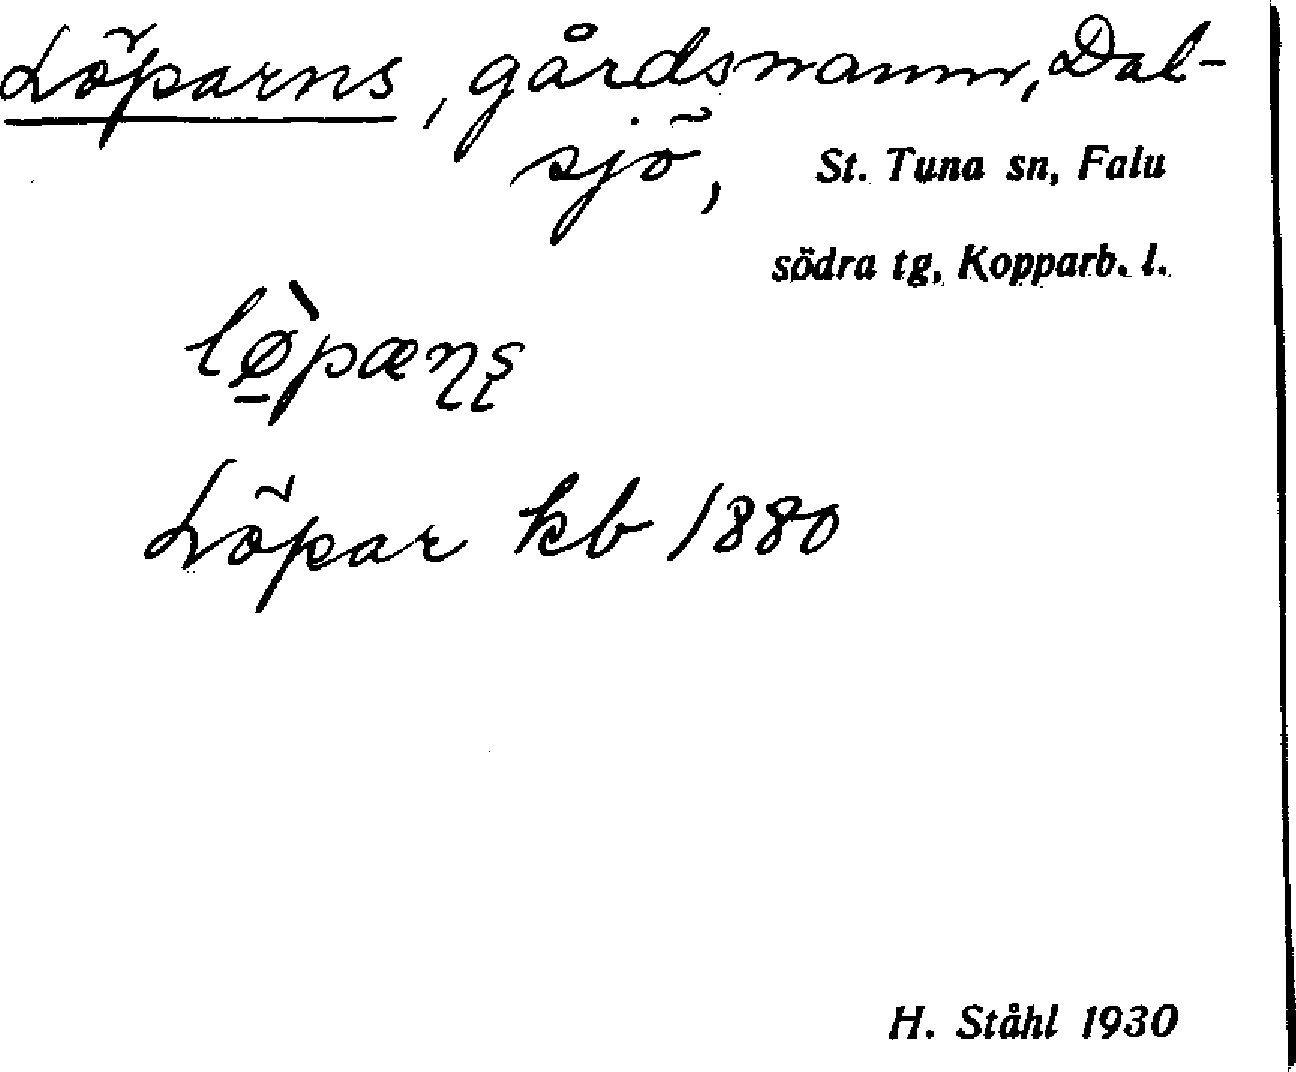 Löparns, gårdsnamn, Dal-
sjö, St. Tuna sn, Falu
södra tg, Kopparb. l.
lø̠̀pæɳʂ
Löpar kb 1880
H. Ståhl 1930